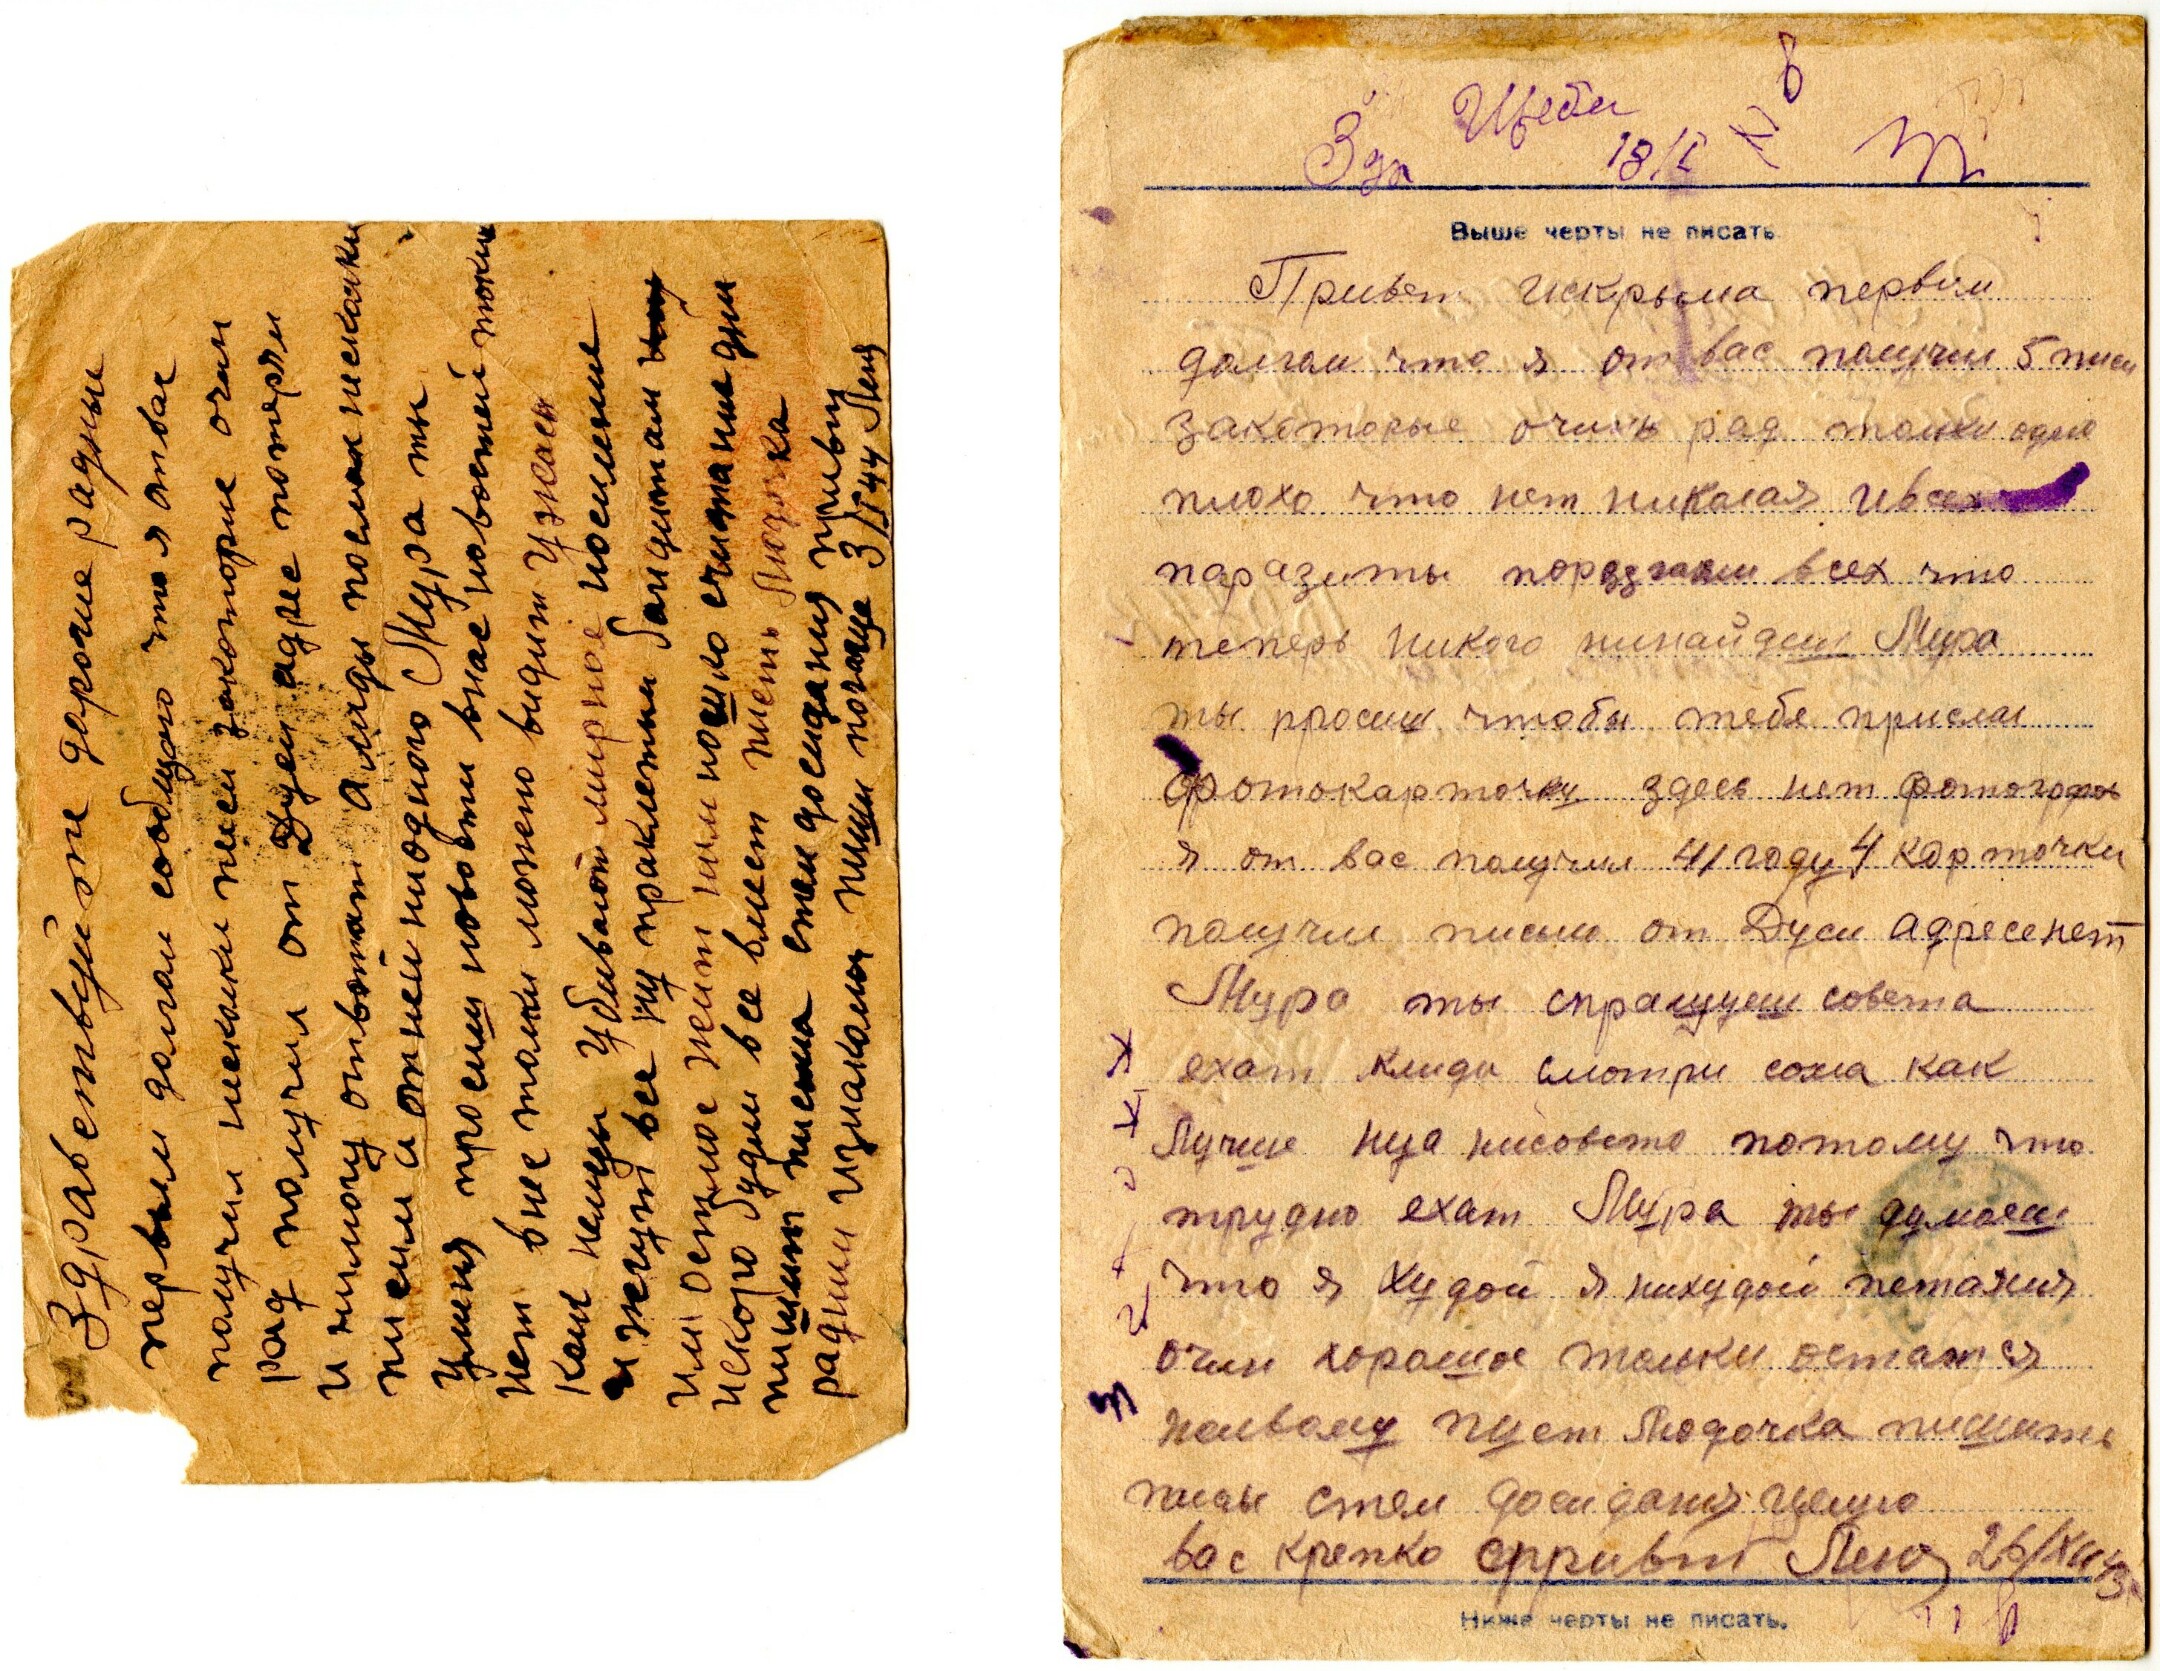 Здравствуйте дарогие радныи
первым долгом сообщаю что я отвас
получил нескалки писем закоторые очин
рад получил от Дуси адрес потерял
и нимогу отвѣтат Алиды послал нескалки
писим и отней ниодного Мура ты
Уминя просиш новости внас новостей таких
нет вне толки можно видит Ужасы
каке немцы Убивают мирное носиление
и жгут все ну праклетым бандитам
им осталос жит нимношко считаные дни
искоро будим все вмест пуст Людочка
пишыт писма стем досвидания привет
радным изнакомым пиши почаще 3/I 44 Леня
Зда
18/I
Выше черты не писать
Привет искрыма первым
долгом что я от вас получил 5 писм
закоторые очинь рад толки одно
плохо что нет николая ивсех
паразиты поразгнали всех что
теперь никого нинайдеш Мура
ты просиш чтобы тебе прислал
фотокарточку здесь нет фотографов
я от вас получил 41 году 4 карточки
получил писмо от Дуси адресе нет
Мура ты спрашуеш совета
ехат клиди смотри сома как
Лучше нуа нисовето потому что
трудно ехат Мура ты думаеш
что я худой я нихудой петания
очин хорошое толки остатся
живому пуст Людочка пишыть
писмы стем досвидания целую
вас крепко сприветом Леня 26/XII 43г
Ниже черты не писать.